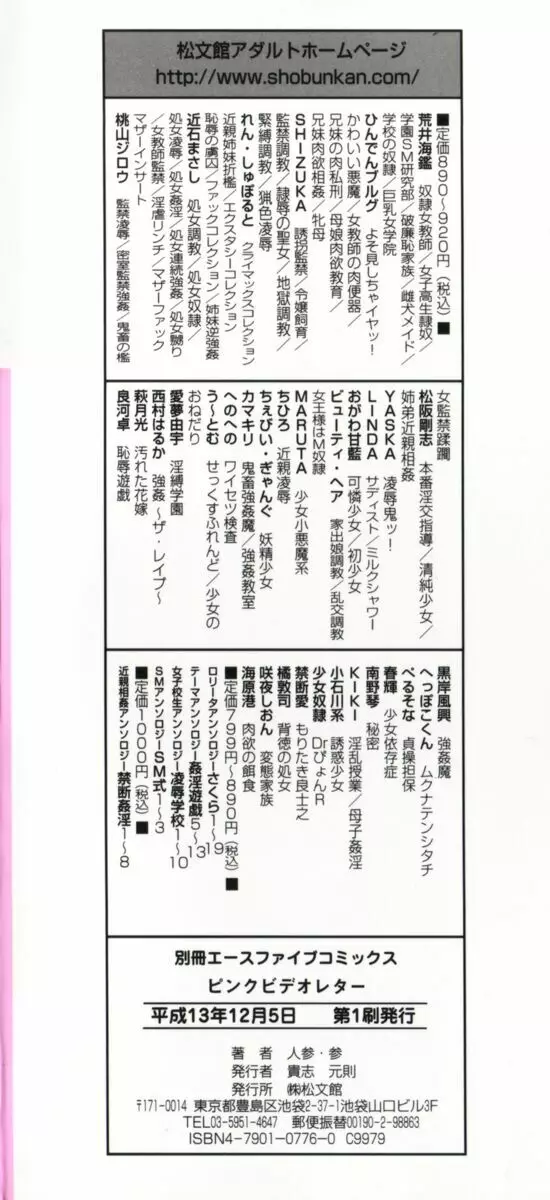 松文館アダルトホームページ
http://www.shobunkan.com/
■定価890〜920円（税込）■
荒井海鑑　奴隷女教師／女子高生隷奴／
学園SM研究部／破廉恥家族／雌犬メイド／
学校の奴隷／巨乳女学院
ひんでんブルグ　よそ見しちゃイヤッ！
かわいい悪魔／女教師の肉便器／
兄妹の肉私刑／母娘肉欲教育／
兄妹肉欲相姦／牝母
SHIZUKA　誘拐監禁／令嬢飼育／
監禁調教／隷辱の聖女／地獄調教／
緊縛調教／猟色凌辱
れん・しゅぼると　クライマックスコレクション
近親姉妹折檻／エクスタシーコレクション
恥辱の虜囚／ファックコレクション／姉妹逆強姦
近石まさし　処女調教／処女奴隷／
処女凌辱／処女姦淫／処女連続強姦／処女嬲り
／女教師監禁／淫虐リンチ／マザーファック
マザーインサート
桃山ジロウ　監禁凌辱／密室監禁強姦／鬼畜の檻
女監禁蹂躙
松阪剛志　本番淫交指導／清純少女／
姉弟近親相姦
YASKA　凌辱鬼ッ！
LINDA　サディスト／ミルクシャワー
おがわ甘藍　可憐少女／初少女
ビューティ・ヘア　家出娘調教／乱交調教
女王様はM奴隷
MARUTA　少女小悪魔系
ちひろ　近親凌辱
ちぇびい・ぎゃんぐ　妖精少女
カマキリ　鬼畜強姦魔／強姦教室
へのへの　ワイセツ検査
う〜とむ　せっくすふれんど／少女の
おねだり
愛夢由宇　淫縛学園
西村はるか　強姦〜ザ・レイプ〜
萩月光　汚れた花嫁
良河卓　恥辱遊戯
黒岸風興　強姦魔
へっぽこくん　ムクナテンシタチ
ぺるそな　貞操担保
春輝　少女依存症
南野琴　秘密
KIKI　淫乱授業／母子姦淫
小石川系　誘惑少女
少女奴隷　DrぴょんR
禁断愛　もりたき良士之
橘敦司　背徳の処女
咲夜しおん　変態家族
海原港　肉欲の餌食
■定価799円〜890円（税込）■
ロリータアンソロジーさくら1〜19
テーマアンソロジー姦淫遊戯5〜13
女子校生アンソロジー凌辱学校1〜10
SMアンソロジーSM式1〜3
■定価1000円（税込）■
近親相姦アンソロジー禁断姦淫1〜8
別冊エースファイブコミックス
ピンクビデオレター
平成13年12月5日　第1刷発行
著　者　人参・参
発行者　貴志　元則
発行所　㈱松文館
〒171-0014 東京都豊島区池袋2-37-1池袋山口ビル3F
TEL03-5951-4647　郵便振替00190-2-98863
ISBN4-7901-0776-0 C9979